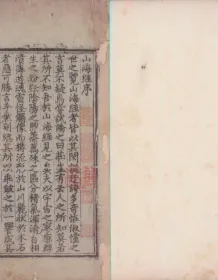 山海經序
世之覽山海經者皆以其閎誕迂誇多奇怪俶儻之
言莫不疑焉嘗試論之曰莊生有云人之所知莫若
其所不知吾於山海經見之矣夫以宇宙之寥廓羣
生之紛紜陰陽之煦蒸萬殊之區分精氣渾淆自相
濆薄遊魂靈怪觸像而構流形於山川麗狀於木石
者惡可勝言乎然則總其所以乖鼓之於一響成其